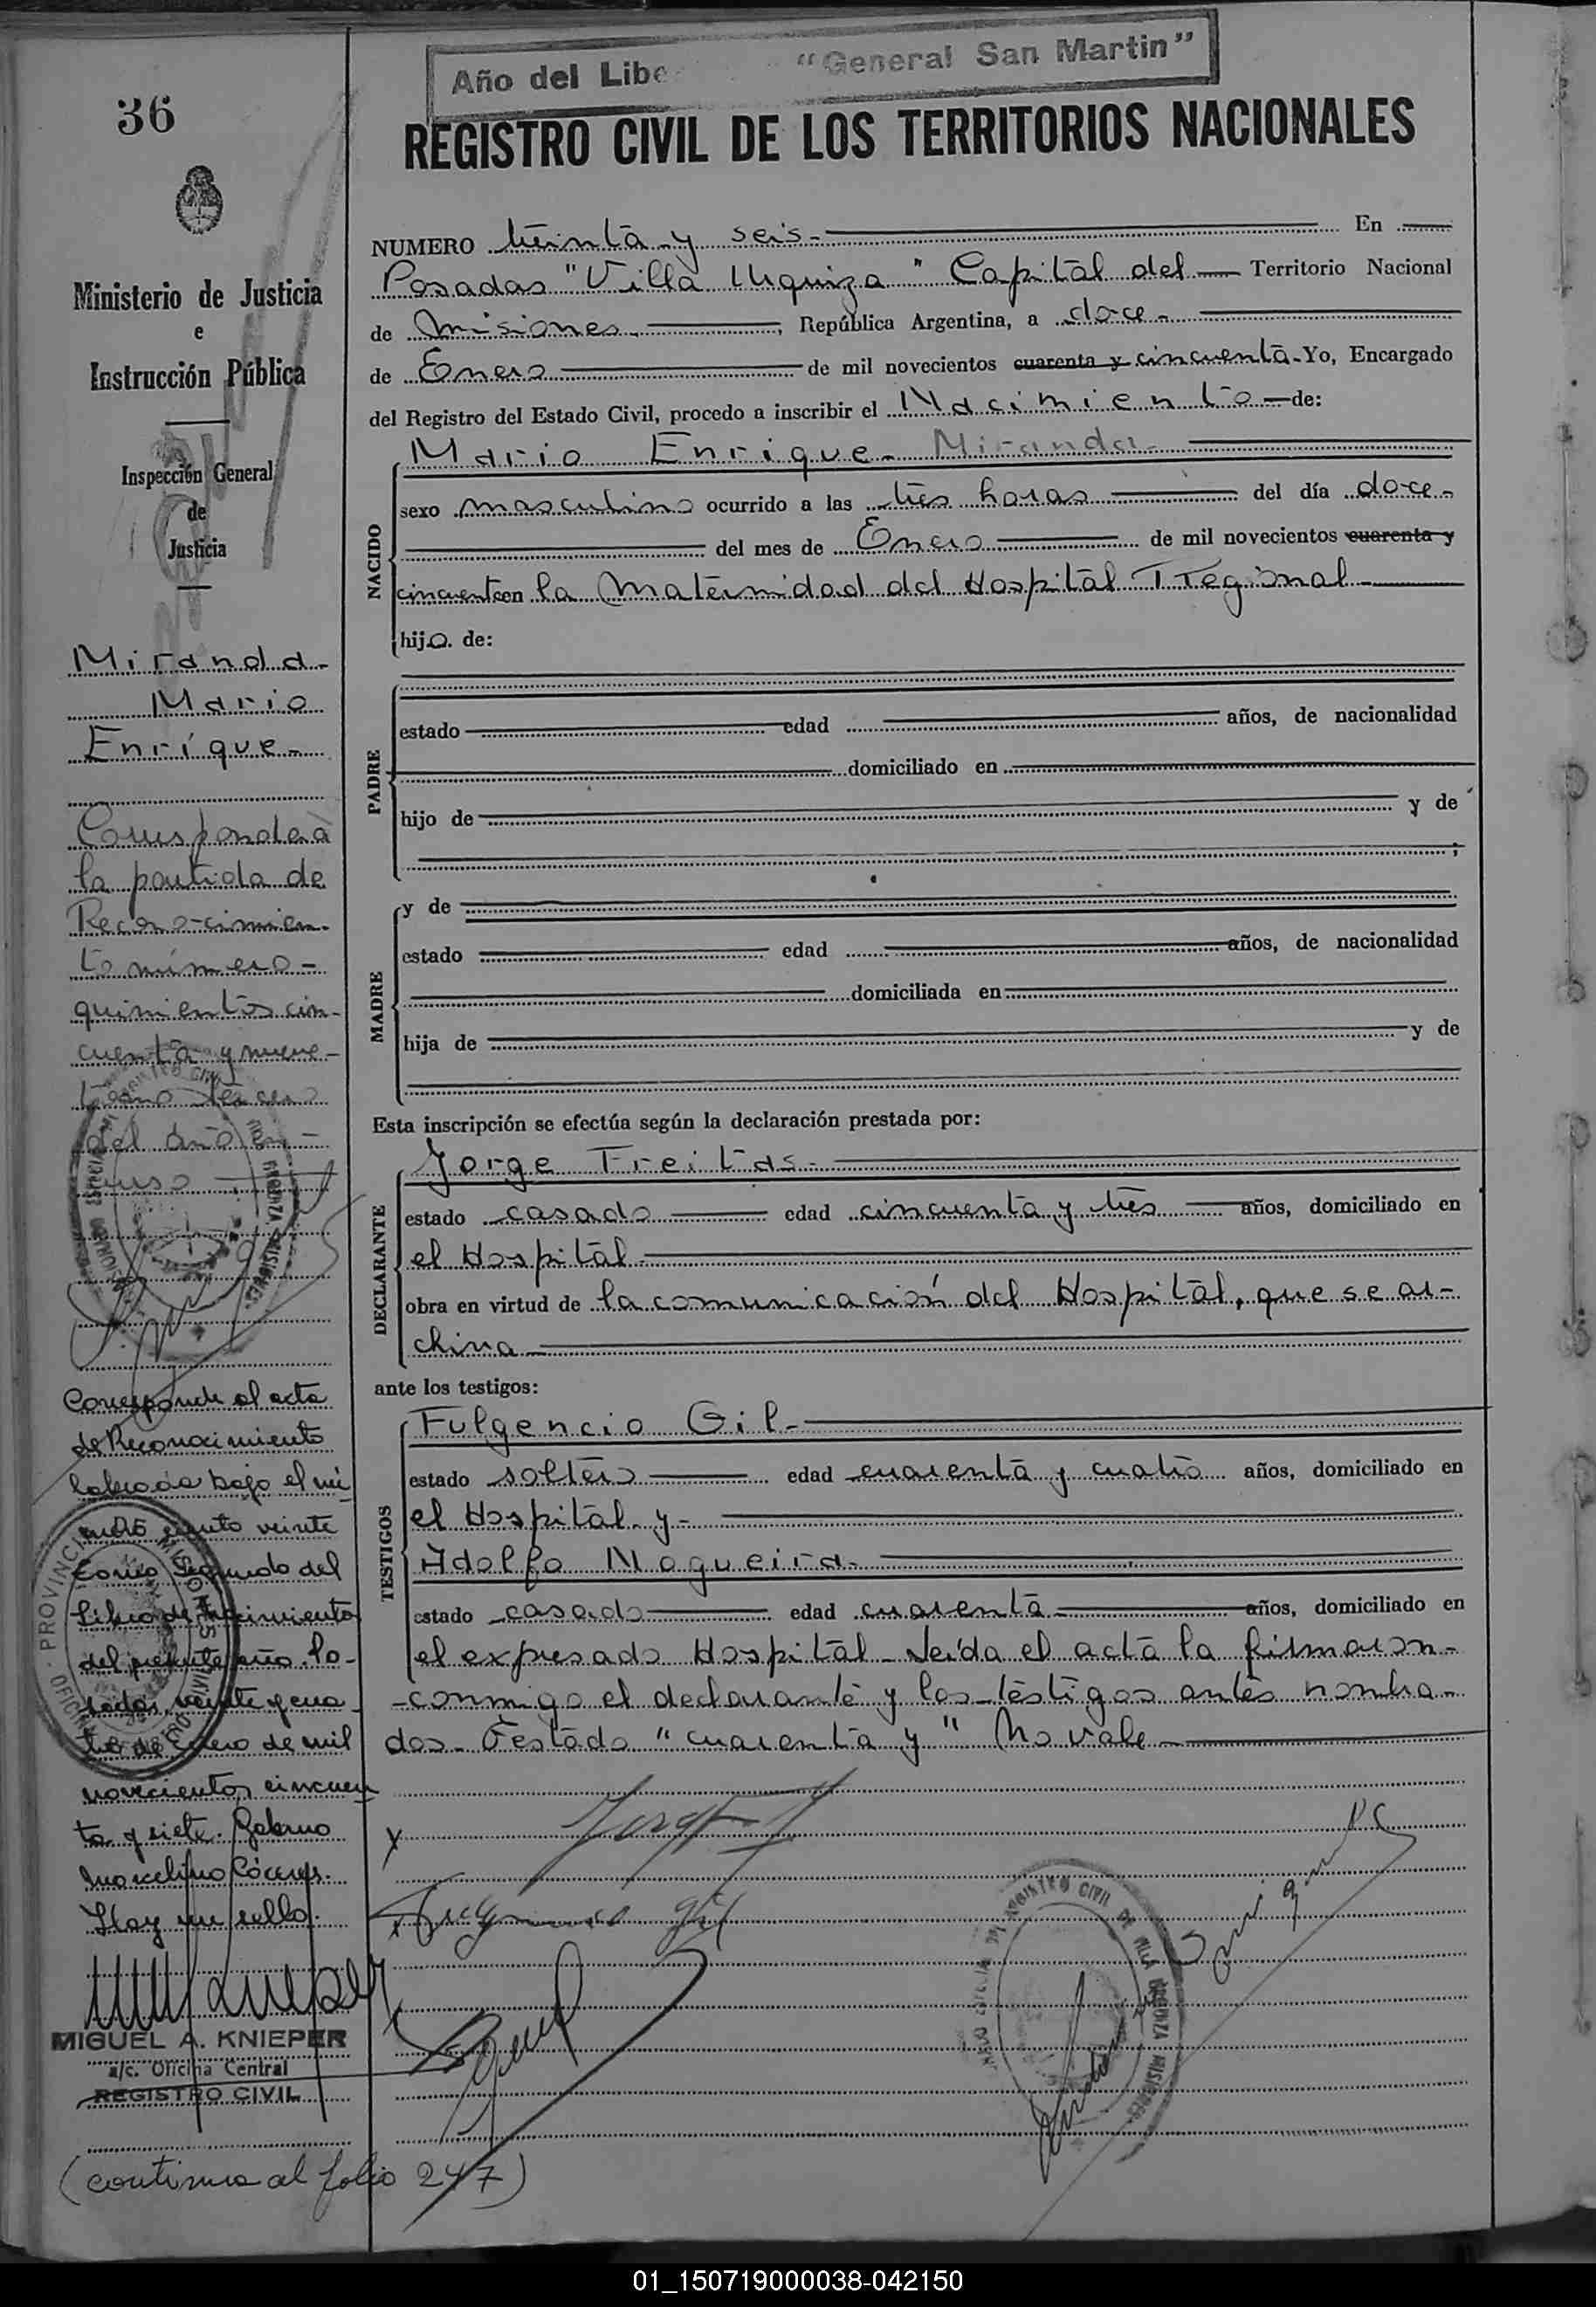 36
Año del Libe "General San Martin"
REGISTRO CIVIL DE LOS TERRITORIOS NACIONALES
Ministerio de Justicia
e
Instrucción Pública
Inspección General
de
Justicia
Miranda-
Mario
Enrique-
Corresponde a
la partida de
Reconocimien-
to número-
quinientos cin-
cuenta y nueve-
tomo tercero
del año en-
curso
Corresponde al acta
de Reconocimiento
labrada bajo el nú
mero ciento veinte
tomo Segundo del
Libro de Nacimientos
del presente año. Po-
sadas, veinte y cua
tro de Enero de mil
novecientos cincuen
ta y siete. Gabino
Marcelino Cáceres.
Hay un sello.
MIGUEL A. KNIEPER
a/c. Oficina Central
REGISTRO CIVIL
(continua al folio 247)
NUMERO treinta y seis- En
Posadas "Villa Urquiza" Capital del Territorio Nacional
de Misiones, República Argentina, a doce-
de Enero de mil novecientos cuarenta y cincuenta-Yo, Encargado
del Registro del Estado Civil, procedo a inscribir el Nacimiento de:
NACIDO
Mario Enrique- Miranda-
sexo masculino ocurrido a las tres horas del día doce-
del mes de Enero de mil novecientos cuarenta y
cincuenta en la Maternidad del Hospital Regional-
hijo. de:
PADRE
estado edad años, de nacionalidad
domiciliado en
hijo de y de
;
MADRE
y de
estado edad años, de nacionalidad
domiciliada en
hija de y de
Esta inscripción se efectúa según la declaración prestada por:
DECLARANTE
Jorge Freitas-
estado casado edad cincuenta y tres años, domiciliado en
el Hospital-
obra en virtud de la comunicación del Hospital, que se ar-
chiva
ante los testigos:
TESTIGOS
Fulgencio Gil-
estado soltero edad cuarenta y cuatro años, domiciliado en
el Hospital y-
Adolfo Nogueira-
estado casado edad cuarenta- años, domiciliado en
el expresado Hospital-Leída el acta la firmaron-
-conmigo el declarante y los testigos antes nombra-
dos-Testado "cuarenta y" No vale-
01_150719000038-042150